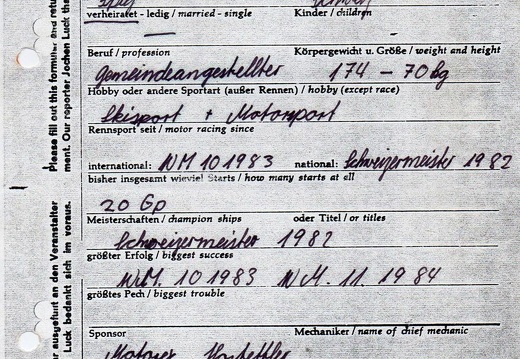 verheiratet - ledig / married - single Kinder / children
Beruf / profession Körpergewicht u. Größe / weight and height
Gemeindeangestellter 174 – 70 kg
Hobby oder andere Sportart (außer Rennen) / hobby (except race)
Skisport + Motorsport
Rennsport seit / motor racing since
international: WM 10 1983 national: Schweizermeister 1982
bisher insgesamt wieviel Starts / how many starts at all
20 Gp
Meisterschaften / champion ships oder Titel / or titles
Schweizermeister 1982
größter Erfolg / biggest success
W.M. 10 1983 W.M. 11. 1984
größtes Pech / biggest trouble
Sponsor Mechaniker / name of chief mechanic
Hostettler
Please fill out this formular and retu
ment. Our reporter Jochen Luck tha
r ausgefüllt an den Veranstalter
Luck bedankt sich im voraus.